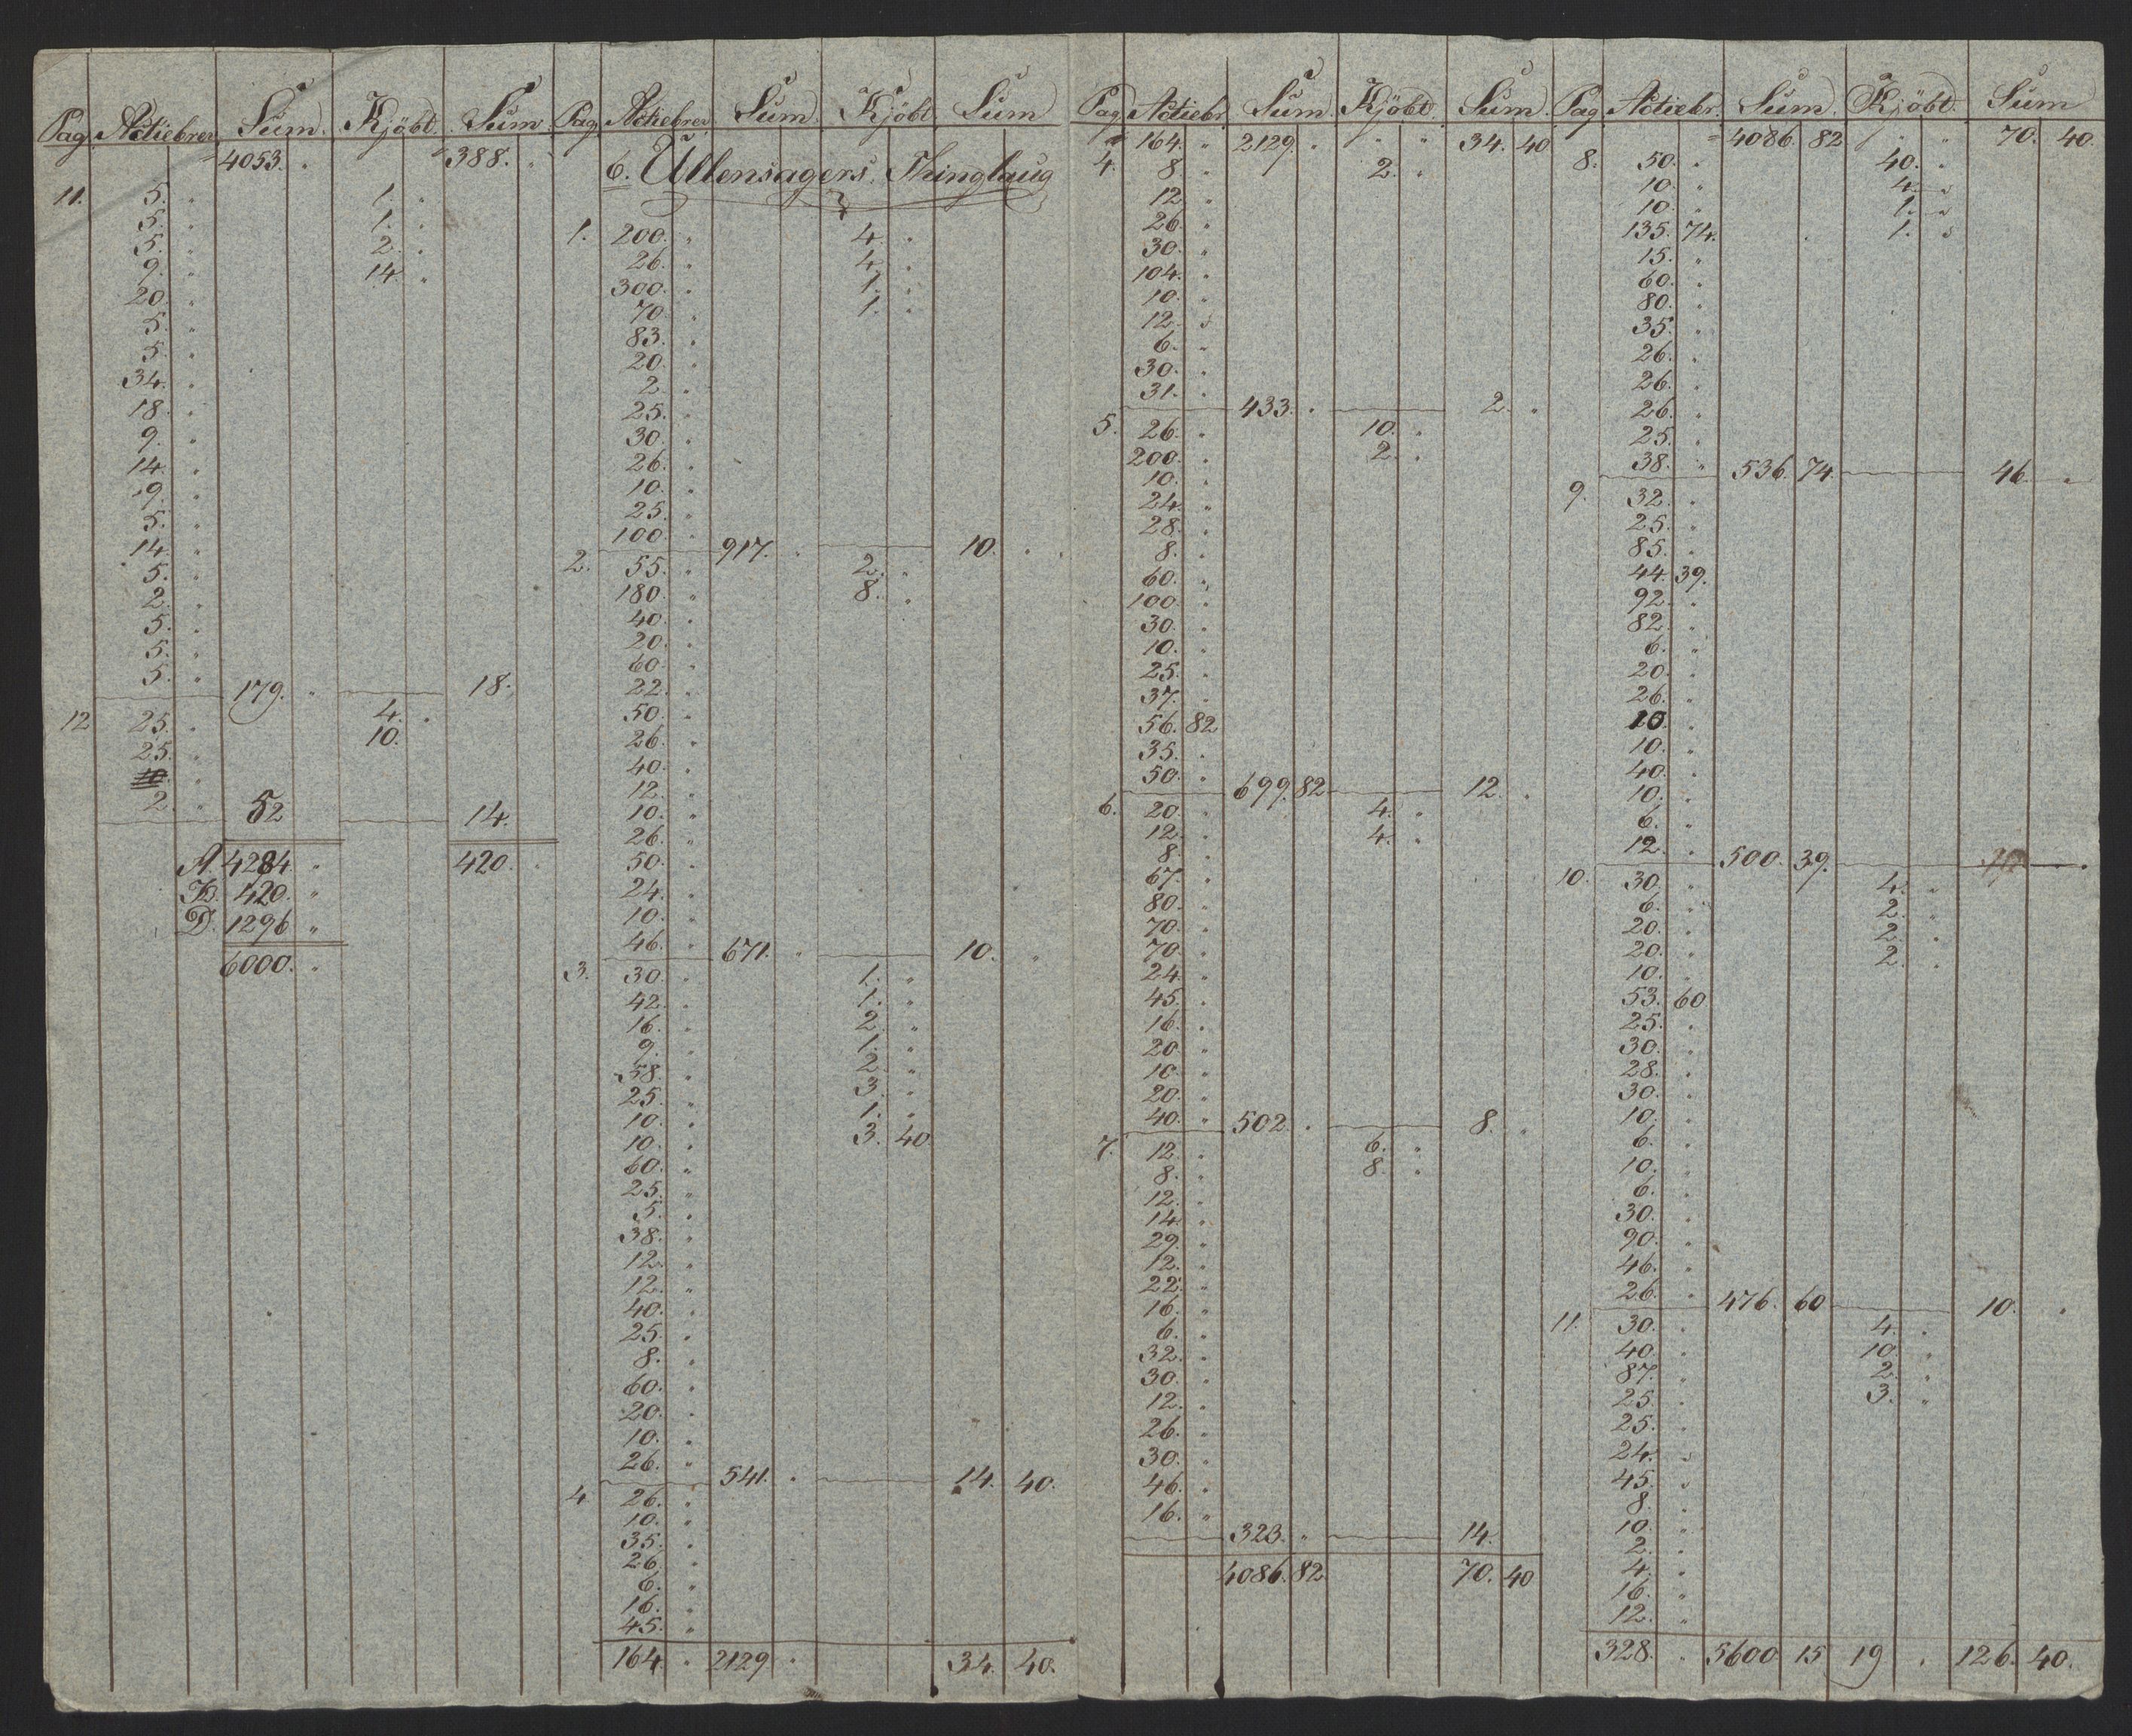 Pag. Actiebrev. Sum. Kjöbt. Sum
4053. 388.
11. 5. 1.
5. 1.
5. 2.
9. 14.
20.
5.
5.
34.
18.
9.
14.
9.
5.
14.
5.
2.
5.
5.
5. 179. 18.
12 25. 4.
25. 10.
10.
2. 52 14.
A. 4284. 420.
B. 420.
D. 1296
6000.
Pag. Actiebrev. Sum. Kjöbt. Sum
6. Ullensagers Thinglaug
1. 200. 4.
26. 4.
300. 1.
70. 1.
83.
20.
2.
25.
30.
26.
10.
25.
100. 917. 10.
2. 55. 2.
180. 8.
40.
20.
60.
22.
50.
26.
40.
12.
10.
26.
50.
24.
10.
46. 671. 10.
3. 30. 1.
42. 1.
16. 2.
9. 1.
58. 2.
25. 3.
10. 1.
10. 3. 40
60.
25.
5.
38.
12.
12.
40.
25.
8.
60.
20.
10.
26. 541. 14. 40.
4 26.
10.
35.
26.
6.
16.
45.
164. 2129 34. 40.
Pag. Actiebr. Sum. Kjöbt. Sum.
164. 2129. 34. 40
4. 8. 2.
12.
26.
30.
104.
10.
12.
6.
30.
31. 433. 2.
5. 26. 10.
200. 2.
10.
24.
28.
8.
60.
100.
30.
10.
25.
37.
56. 82
35.
50. 699. 82 12.
6. 20. 4.
12. 4.
8.
67.
80.
70.
70.
24.
45.
16.
20.
10.
20.
40. 502. 8.
7. 12. 6.
8. 8.
12.
14.
29.
12.
22.
16.
6.
32.
30.
12.
26.
30.
46.
16.
323. 14.
4086. 82 70. 40
Pag Actiebr. Sum. Kjöbt. Sum
4086. 82 70. 40.
8. 50. 40.
10. 4.
10. 1.
135. 74. 1.
15.
60.
80.
35.
26.
26.
26.
25.
38. 536. 74. 46.
9. 32.
25.
85.
44. 39.
92.
82.
6.
20.
26.
10.
10.
40.
10.
6.
12. 500. 39.
10. 30. 4.
6. 2.
20. 2.
20. 2.
10.
53. 60
25.
30.
28.
30.
10.
6.
10.
6.
30.
90.
46.
26. 476. 60 10.
11. 30. 4.
40. 10.
87. 2.
25. 3.
25.
24.
45.
8.
10.
2.
4.
16.
12.
328. 5600 15 19 126. 40.